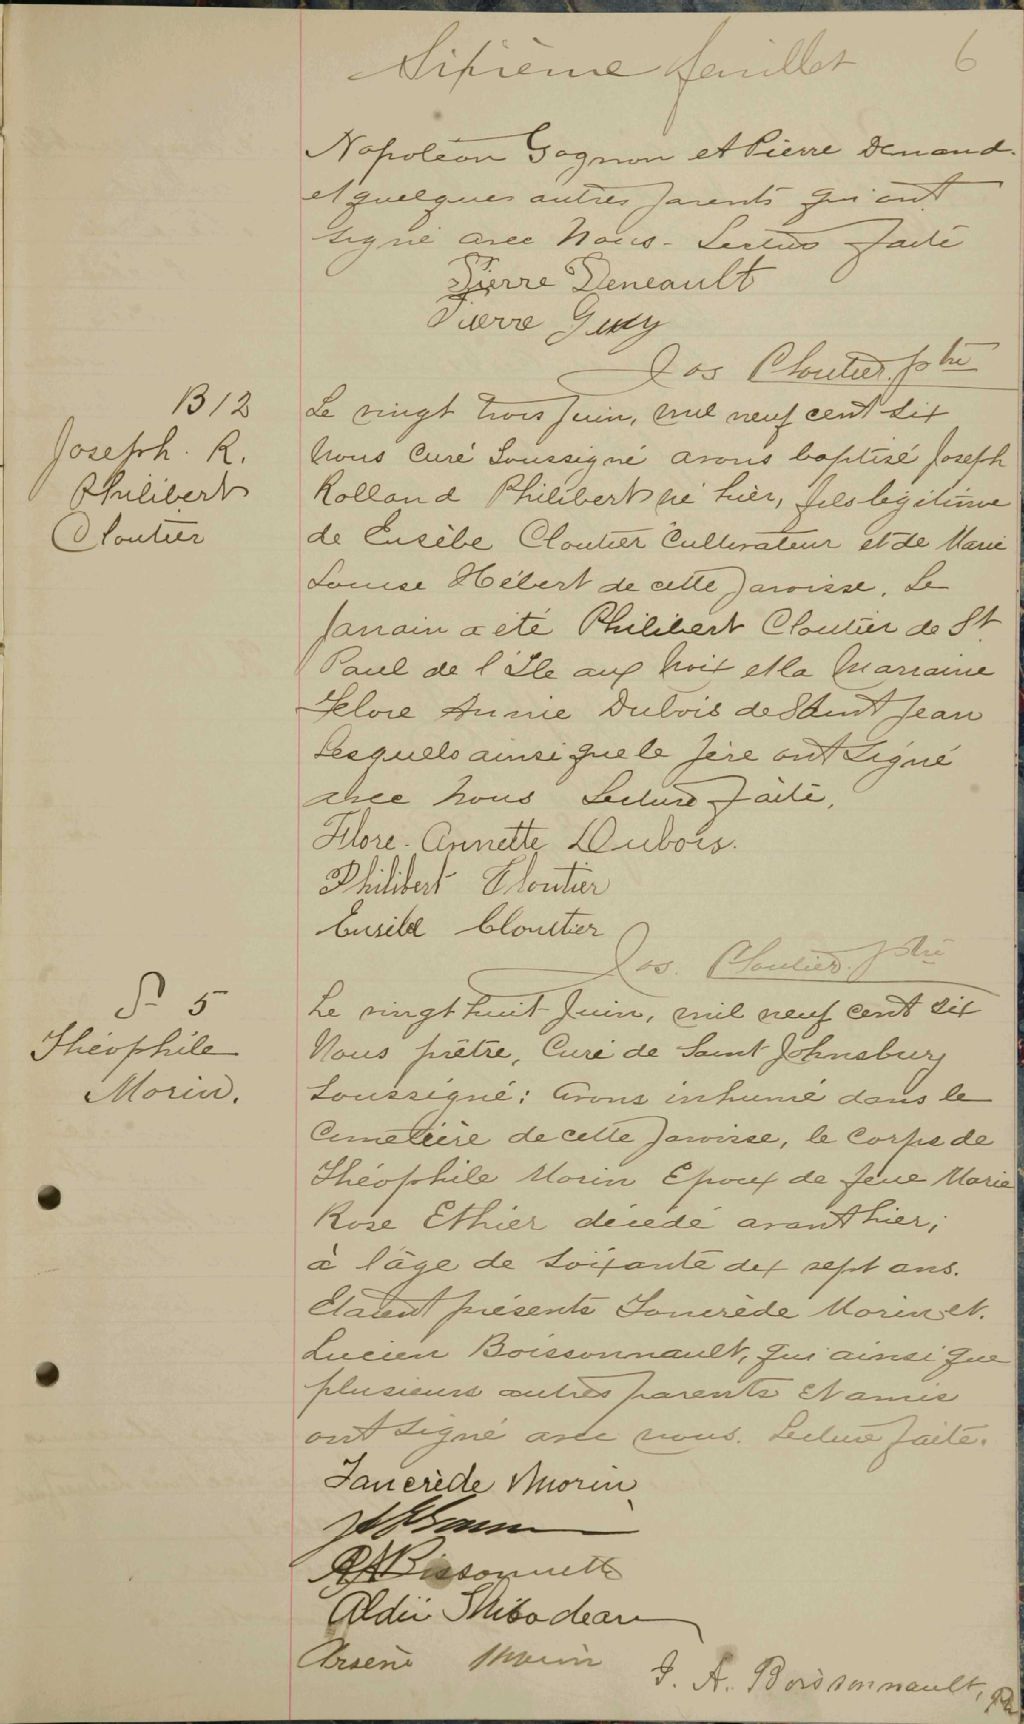 Sixième feuillet 6
Napoléon Gagnon et Pierre Denaud.
et quelques autres parents qui ont
signé avec Nous - Lecture faite
Pierre Deneault
Pierre Guay
Jos Cloutier ptre
B 12
Joseph. R.
Philibert
Cloutier
Le vingt trois Juin, mil neuf cent six
Nous Curé Soussigné avons baptisé Joseph
Rolland Philibert né hier, fils légitime
de Eusèbe Cloutier Cultivateur et de Marie
Louise Hébert de cette paroisse. Le
parrain a été Philibert Cloutier de St
Paul de l'Ile aux Noix et la Marraine
Flore Annie Dubois de Saint Jean
Lesquels ainsi que le père ont signé
avec Nous Lecture faite.
Flore-Annette Dubois.
Philibert Cloutier
Eusèbe Cloutier
Jos. Cloutier. ptre
S 5
Théophile
Morin.
Le vingt huit Juin, mil neuf cent six
Nous prêtre, Curé de Saint Johnsbury
Soussigné: avons inhumé dans le
Cimetière de cette paroisse, le corps de
Théophile Morin Epoux de feue Marie
Rose Ethier décédé avant hier;
à l'âge de soixante dix sept ans.
Etaient présents Tancrède Morin et.
Lucien Boissonnault, qui ainsi que
plusieurs autres parents et amis
ont signé avec nous. Lecture faite.
Tancrède Morin
Bissonnette
Aldéi Thibodeau
Arsène Morin
J. A. Boissonnault, Ptr